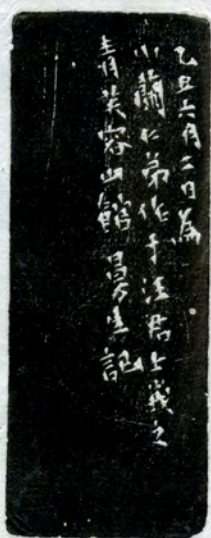 乙丑六月二日為
小蘭仁弟作于汪君士義之
青芙容山館 昌生記